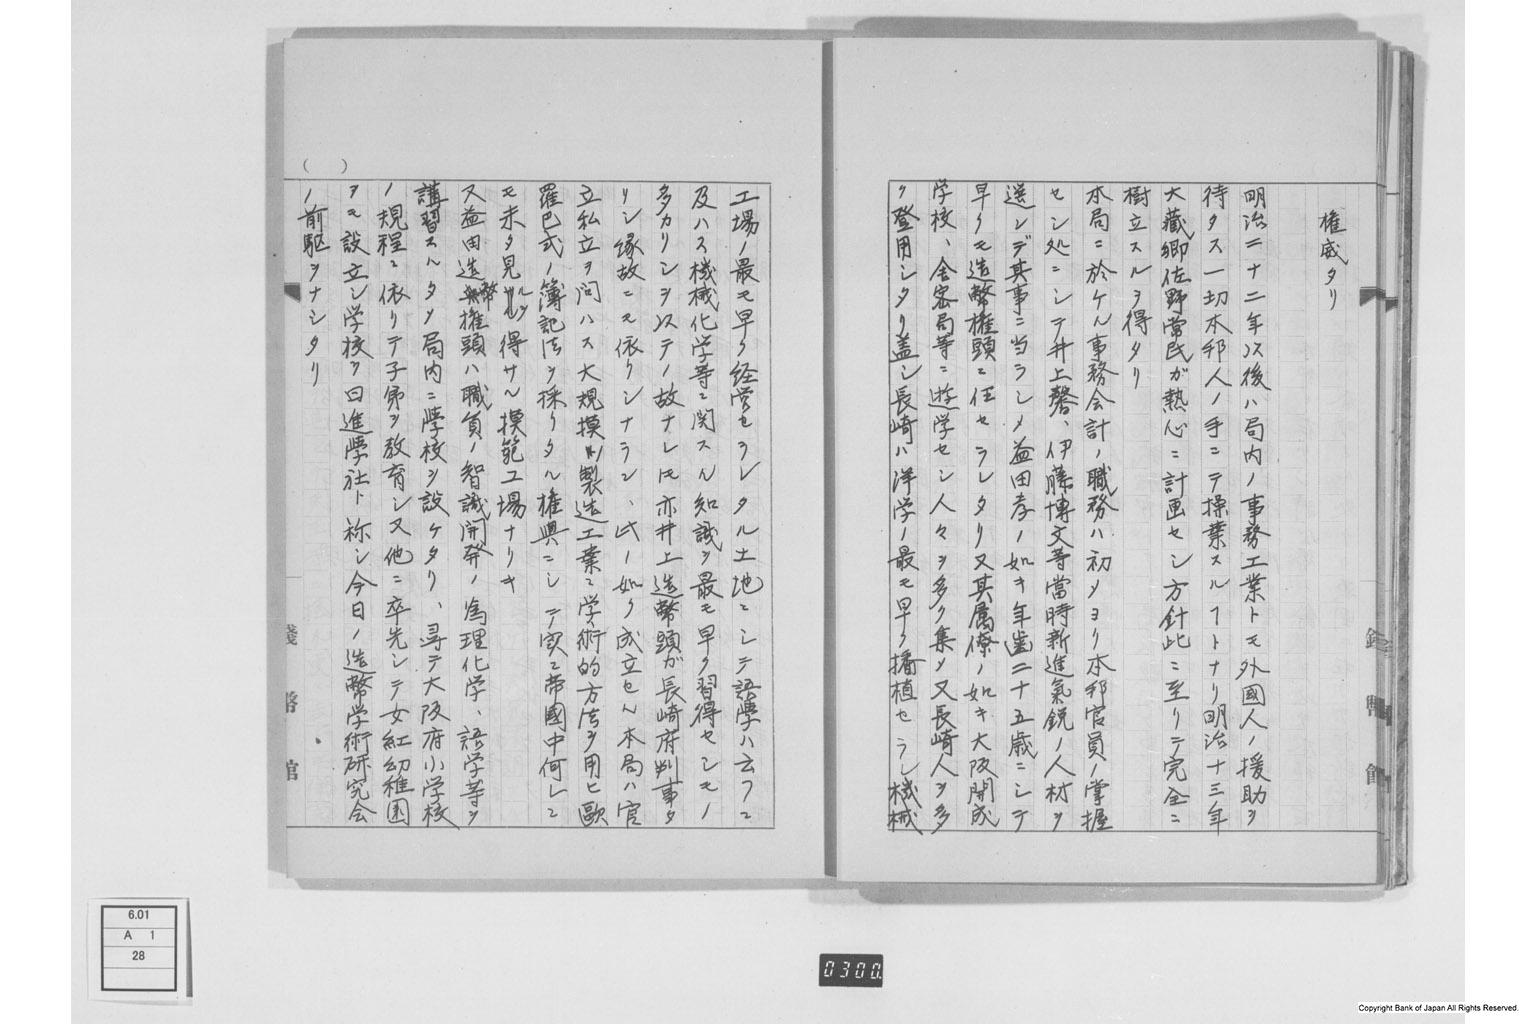 権威タリ
明治二十二年以後ハ局内ノ事務工業トモ外國人ノ援助ヲ
待タス一切本邦人ノ手ニテ操業スルヿトナリ明治十三年
大藏卿佐野常民ガ熱心ニ計画セシ方針此ニ至リテ完全ニ
樹立スルヲ得タリ
本局ニ於ケル事務会計ノ職務ハ初メヨリ本邦官員ノ掌握
セシ処ニシテ井上馨、伊藤博文等當時新進氣鋭ノ人材ヲ
選ンデ其事ニ当ラシメ益田孝ノ如キ年歯二十五歳ニシテ
早クモ造幣権頭ニ任セラレタリ又其属僚ノ如キ大阪開成
学校、舎密局等ニ遊学セシ人々ヲ多ク集メ又長崎人ヲ多
ク登用シタリ蓋シ長崎ハ洋学ノ最モ早ク播植セラレ機械
工場ノ最モ早ク経営セラレタル土地ニシテ語學ハ云フニ
及ハス機械化学等ニ関スル知識ヲ最モ早ク習得セシモノ
多カリシヲ以テノ故ナレトモ亦井上造幣頭が長崎府判事タ
リシ縁故ニモ依リシナラン、此ノ如ク成立セル本局ハ官
立私立ヲ問ハス大規摸ノ製造工業ニ学術的方法ヲ用ヒ歐
羅巴式ノ簿記法ヲ採リタル権輿ニシテ実ニ帝國中何レニ
モ未タ見ルヲ得サル摸範工場ナリキ
又益田造幣権頭ハ職員ノ智識開発ノ為理化学、語学等ヲ
講習スルタメ局内ニ學校ヲ設ケタリ、尋テ大阪府小学校
ノ規程ニ依リテ子弟ヲ教育シ又他ニ卒先シテ女紅幼稚園
ヲモ設立シ学校ヲ日進學社ト称シ今日ノ造幣学術研究会
ノ前駆ヲナシタリ
( )
6.01
A 1
28
0300.
Copyright Bank of Japan All Rights Reserved.